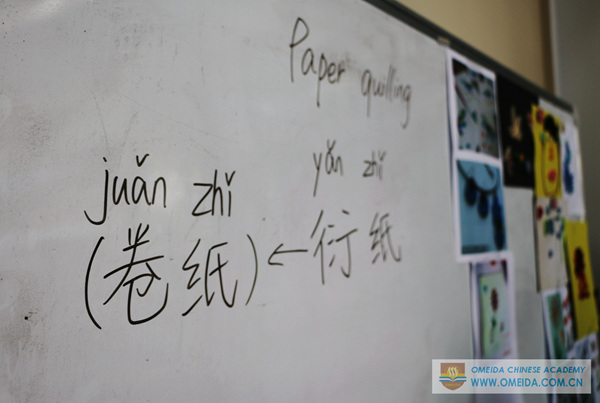 Paper quilling
yǎn zhǐ
juǎn zhǐ
(卷纸)←衍纸
OMEIDA CHINESE ACADEMY
WWW.OMEIDA.COM.CN